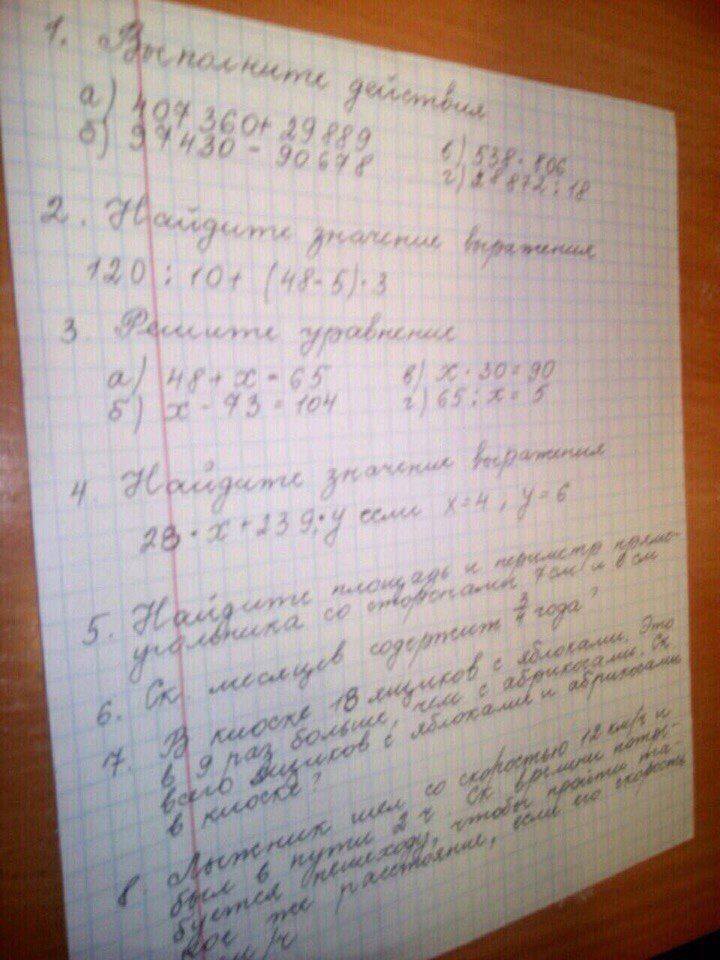 1. Выполните действия
а) 407 360 + 29 889
б) 97 430 - 90 678
в) 538 · 106
г) 28 872 : 18
2. Найдите значение выражения
120 : 10 + (48 - 5) · 3
3. Решите уравнение
а) 48 + х = 65
б) х - 73 = 104
в) х · 30 = 90
г) 65 : х = 5
4 Найдите значение выражения
28 · х + 239 · у если х = 4, у = 6
5. Найдите площадь и периметр прямо-
угольника со сторонами 7 см и 8 см
6. Ск. месяцев содержит 3/4 года?
7. В киоске 18 ящиков с яблоками. Это
в 9 раз больше, чем с абрикосами. Ск
всего ящиков с яблоками и абрикосами
в киоске?
8. Лыжник шел со скоростью 12 км/ч и
был в пути 2 ч. Ск времени потре-
буется пешеходу, чтобы пройти та-
кое же расстояние, если его скорость
км/ч